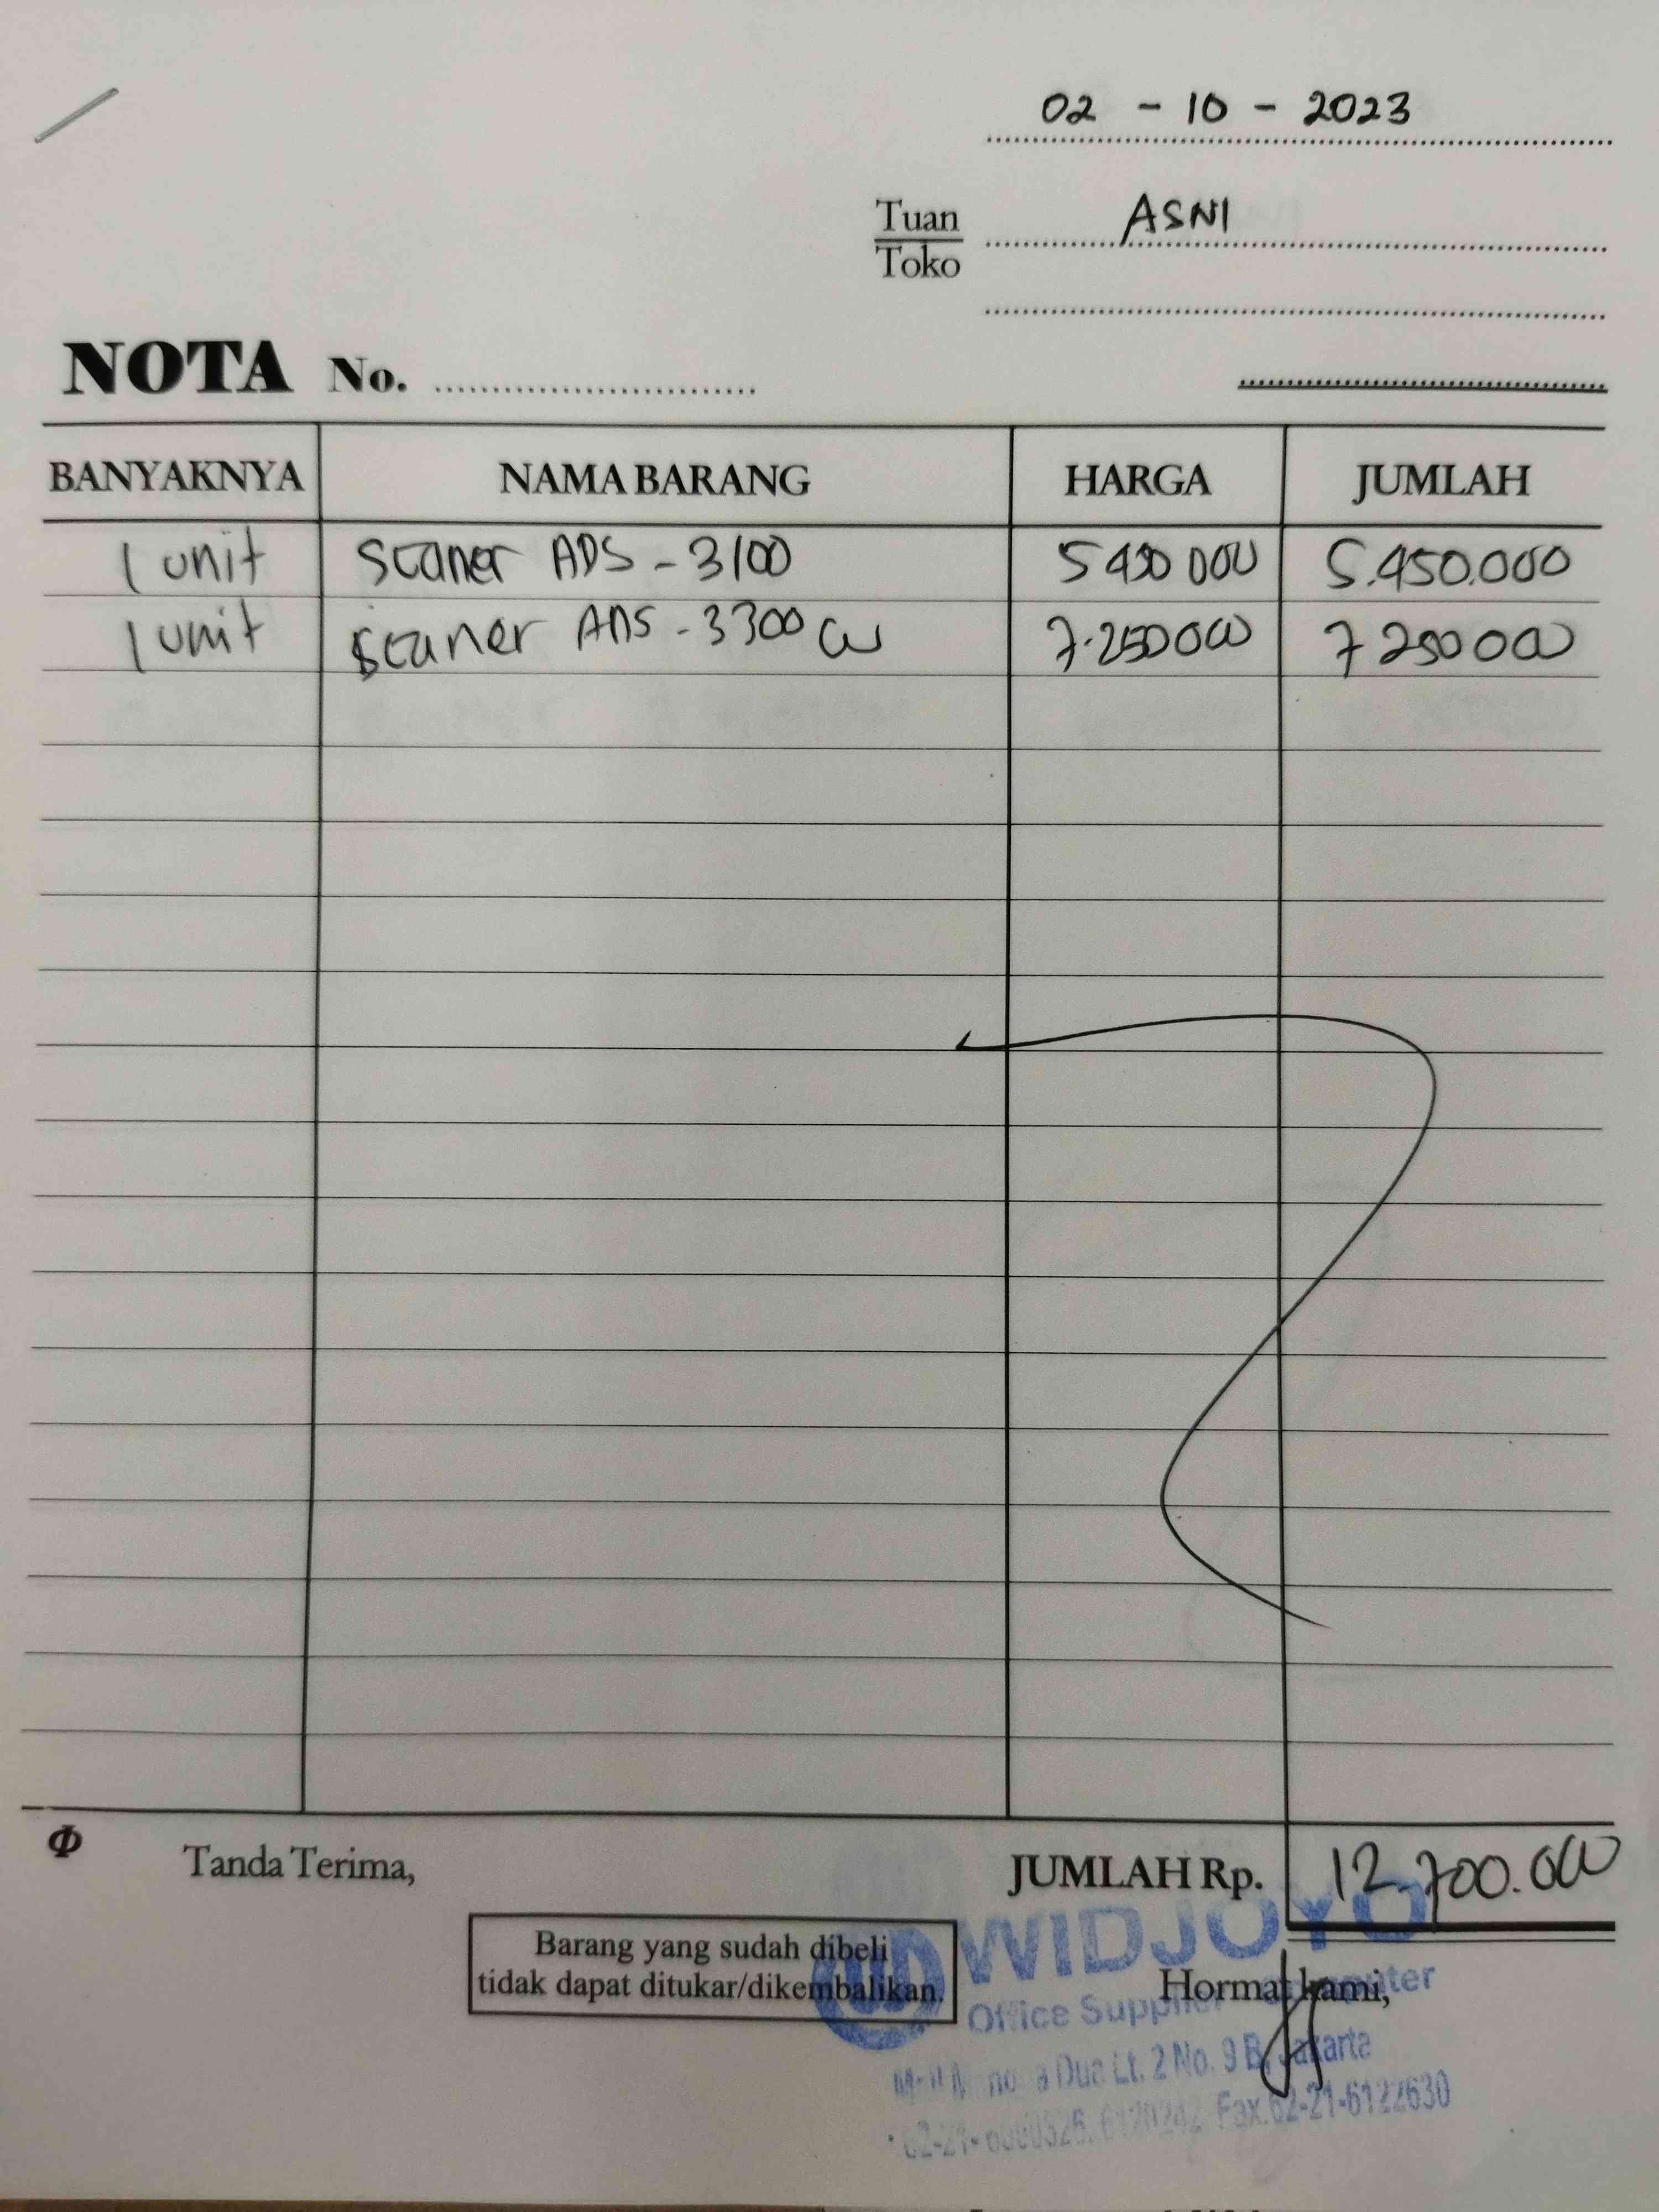 02 - 10 - 2023
Tuan ASNI
Toko
NOTA No.
BANYAKNYA NAMA BARANG HARGA JUMLAH
1 unit Scaner ADS - 3100 5 450 000 5.450.000
1 unit Scaner ADS - 3300 W 7.250 000 7 250 000
Tanda Terima, JUMLAH Rp. 12.700.000
Barang yang sudah dibeli
tidak dapat ditukar/dikembalikan.
WIDJOYO
Hormat kami,
Office Supplier
Dua Lt. 2 No. 9 B, Jakarta
Fax.62-21-6122630